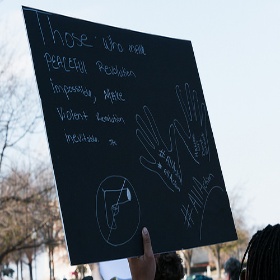 Those who make
PEACEFUL Revolution
Impossible, Make
Violent Revolution
Inevitable